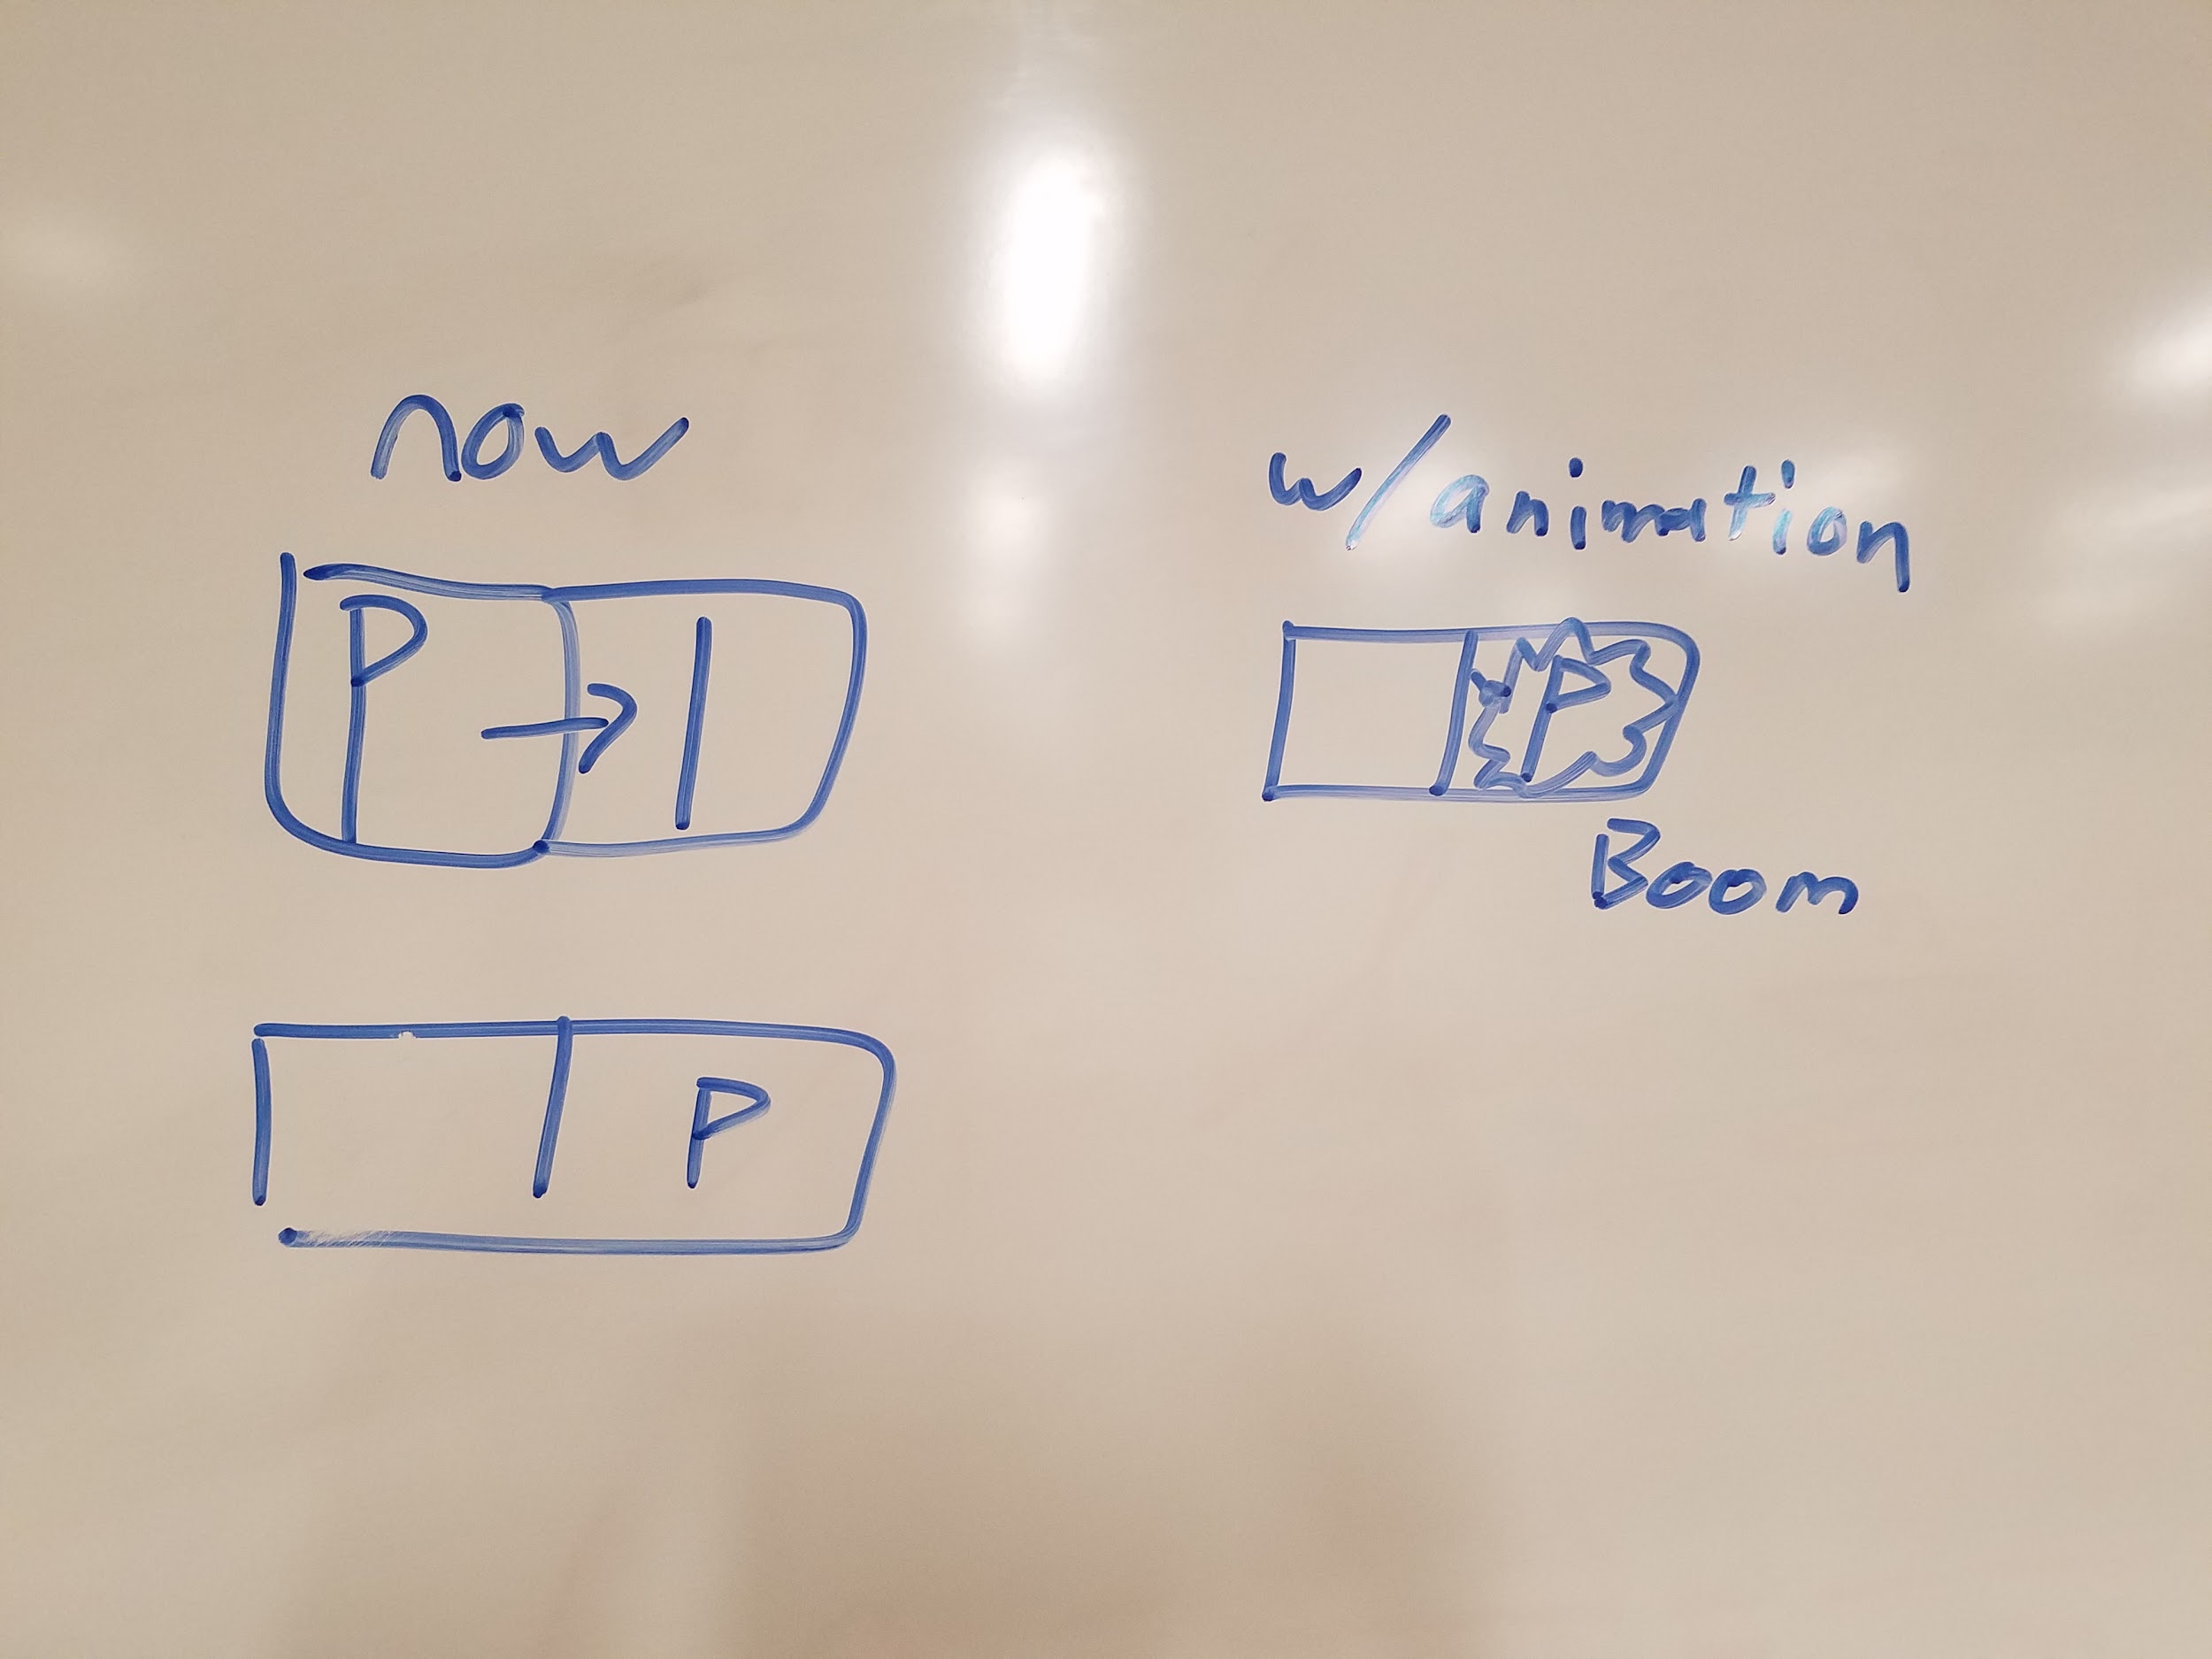 now
w/animation
P → |
P
Boom
P